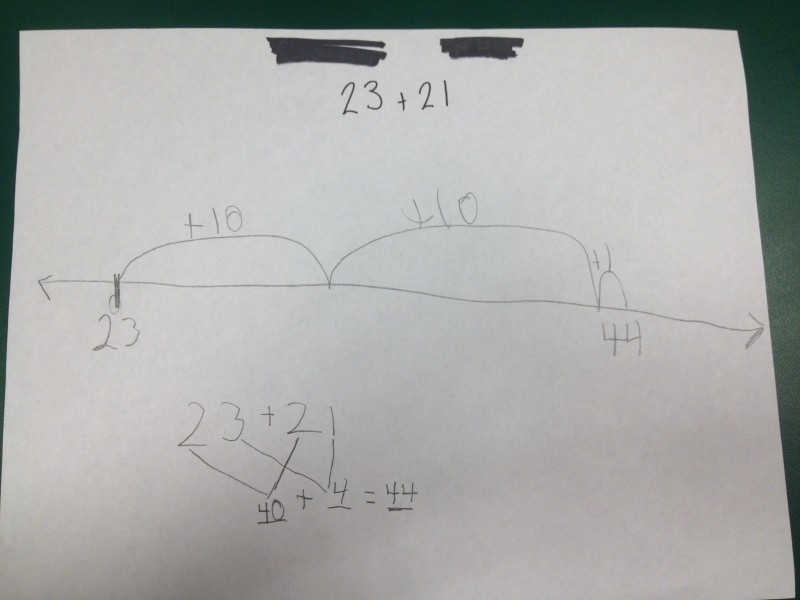 23 + 21
+10 +10 +1
23 44
23 + 21
40 + 4 = 44